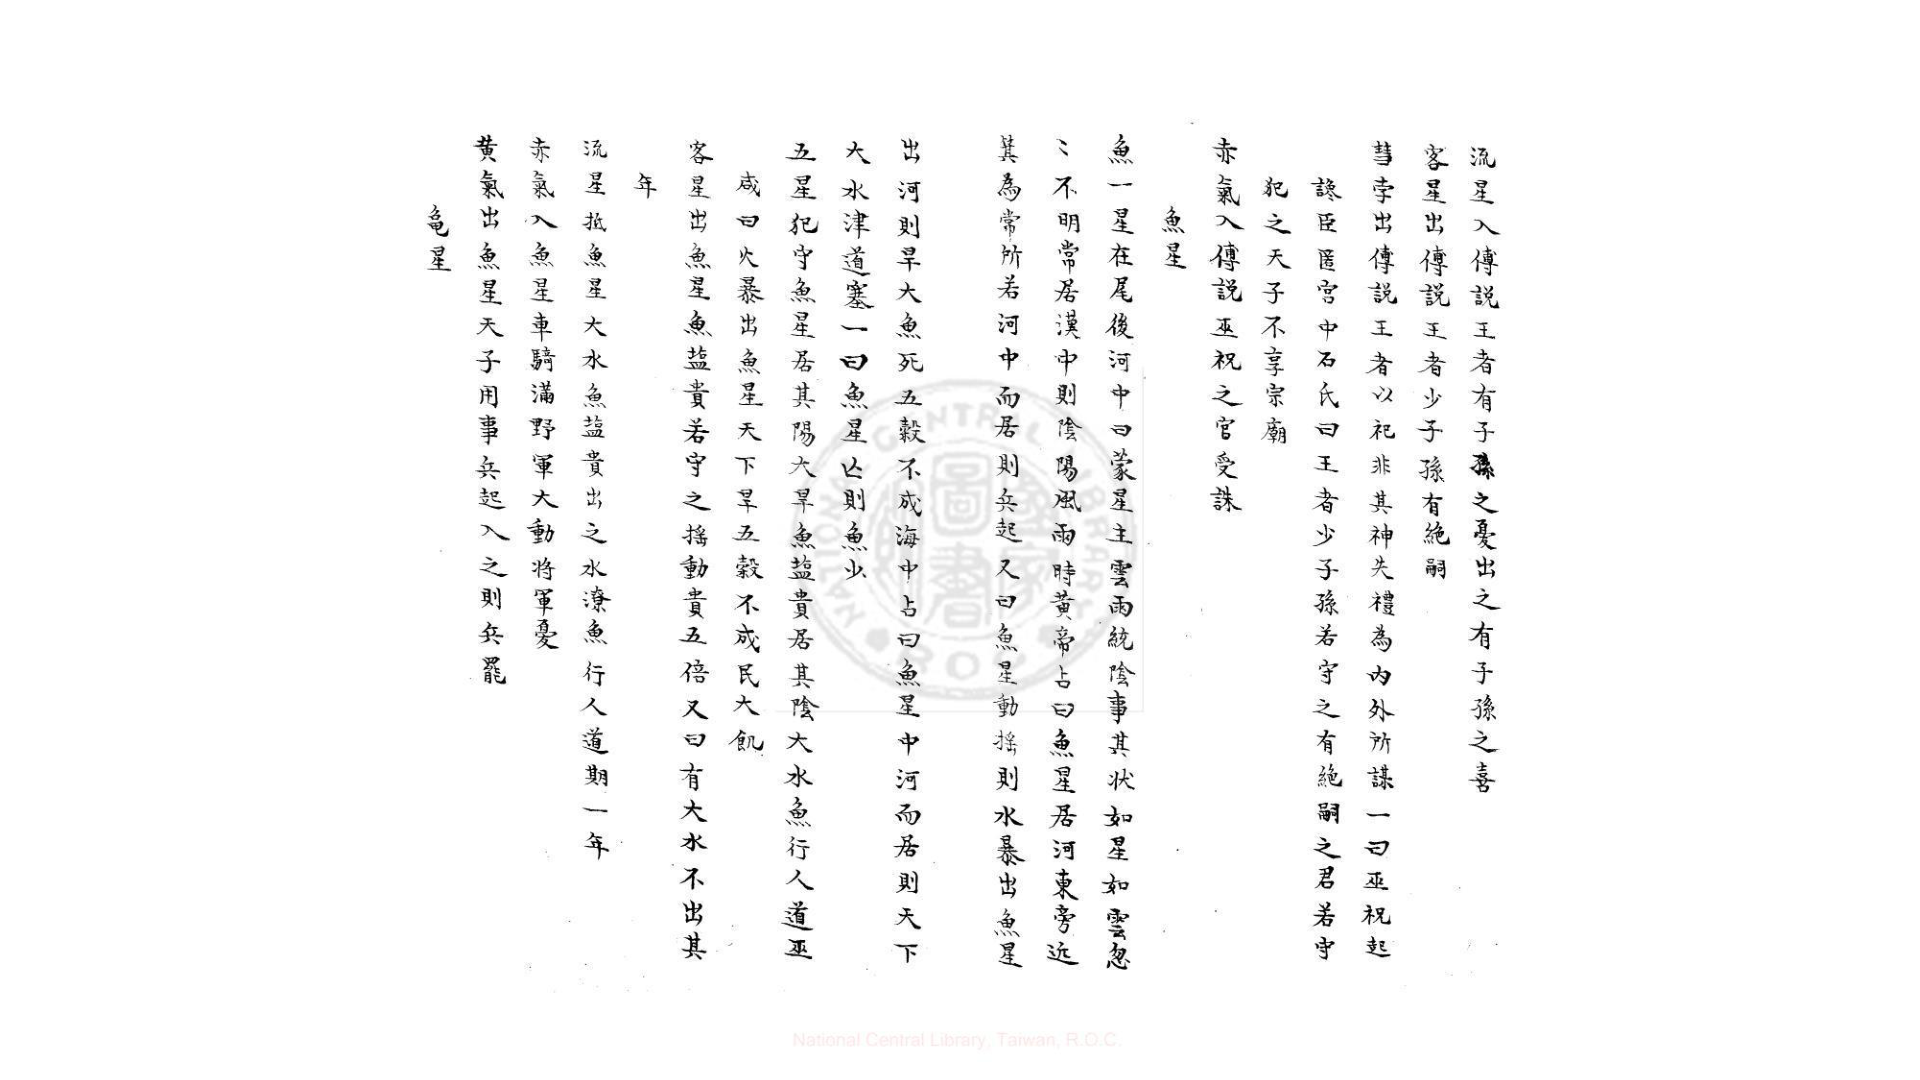 流星入傅説王者有子孫之憂出之有子孫之喜
客星出傅説王者少子孫有絶嗣
彗孛出傅説王者以祀非其神失禮為内外所謀一曰巫祝起
讒臣匿宮中石氏曰王者少子孫若守之有絶嗣之君若守
犯之天子不享宗廟
赤氣入傅説巫祝之官受誅
魚星
魚一星在尾後河中曰蒙星主雲雨統陰事其状如星如雲忽
〻不明常居漢中則陰陽風雨時黄帝占曰魚星居河東旁近
箕為常所若河中而居則兵起又曰魚星動揺則水暴出魚星
出河則旱大魚死五穀不成海中占曰魚星中河而居則天下
大水津道塞一曰魚星亾則魚少
五星犯守魚星居其陽大旱魚塩貴居其陰大水魚行人道巫
咸曰火暴出魚星天下旱五穀不成民大飢
客星出魚星魚塩貴若守之揺動貴五倍又曰有大水不出其
年
流星抵魚星大水魚塩貴出之水潦魚行人道期一年
赤氣入魚星車騎滿野軍大動将軍憂
黄氣出魚星天子用事兵起入之則兵罷
亀星
NATIONAL CENTRAL LIBRARY
R.O.C.
國家圖書館
National Central Library, Taiwan, R.O.C.